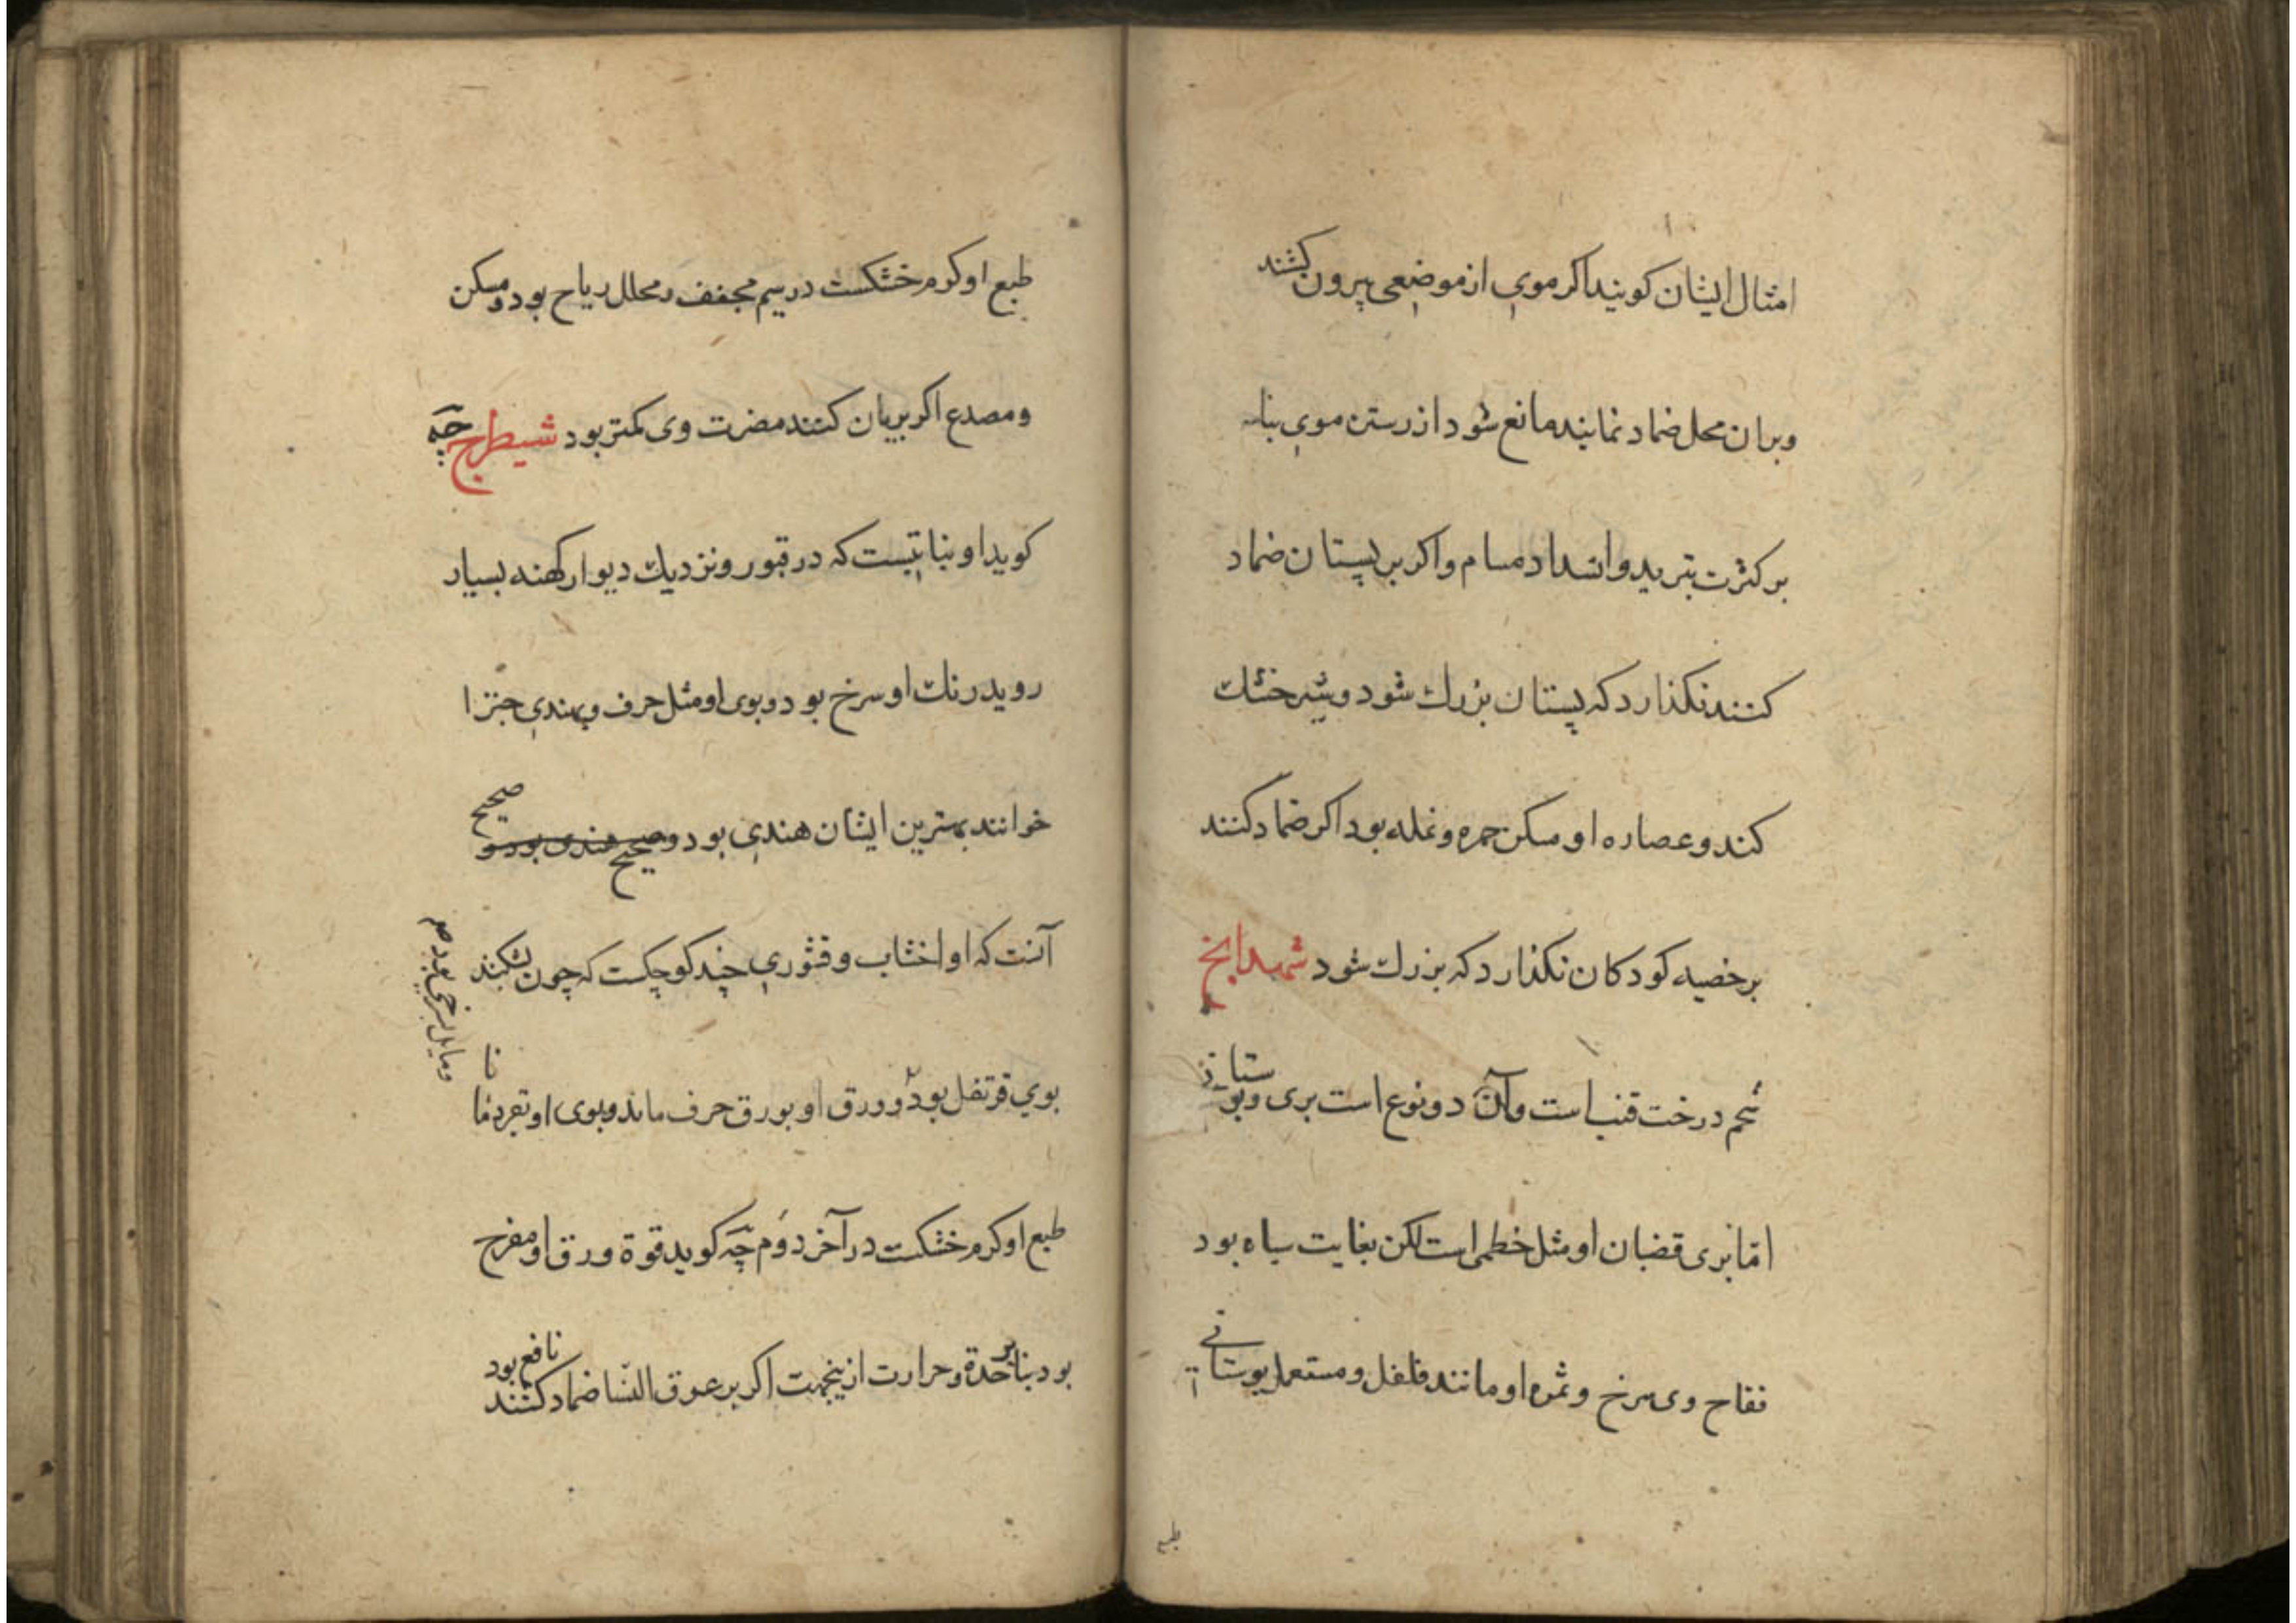 امثال ایشان کویند اکر موی از موضعی بیرون کشند
و بران محل ضماد نمایند مانع شود از رستن موی بنا
بر کثرت تبرید و انسداد مسام و اکر بر پستان ضماد
کنند نکذارد که پستان بزرك شود و شیر خشك
کند و عصاره او مسکن حمره و نمله بود اکر ضماد کنند
بر خصیه کودکان نکذارد که بزرك شود شهدانج
تخم درخت قنب است و آن دو نوع است بری و بوستانی
امّا بری قضبان او مثل خطمی است لکن بغایت سیاه بود
فقاح وی سرخ و ثمره او مانند فلفل و مستعمل بوستانی
طبع
طبع او کرم خشکست در سیم مجفف و محلل ریاح بود و مسکن
و مصدع اکر بریان کنند مضرت وی کمتر بود شیطرج جه
کوید او نباتیست که در قبور و نزدیك دیوار کهنه بسیار
روید رنك او سرخ بود و بوی او مثل حرف و بهندی چترا
خوانند بهترین ایشان هندی بود و صحیح هندی بود و صحیح
آنست که او اخشاب و قشوری چند کوچکست که چون بشکنند
بوی قرنفل بود و ورق او بورق حرف ماند و بوی او بقردمانا
طبع او کرم خشکست در آخر دوم جه کوید قوة ورق او مقرح
بود بنا بر حدة و حرارت ازینجهت اکر بر عرق النسا ضماد کنند نافع بود
و مایل بسرخی